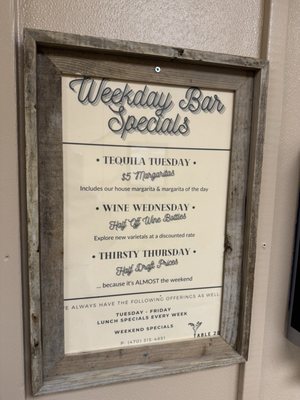 Weekday Bar
Specials
• TEQUILA TUESDAY •
$5 Margaritas
Includes our house margarita & margarita of the day
• WINE WEDNESDAY •
Half Off Wine Bottles
Explore new varietals at a discounted rate
• THIRSTY THURSDAY •
Half Draft Prices
... because it's ALMOST the weekend
WE ALWAYS HAVE THE FOLLOWING OFFERINGS AS WELL
TUESDAY - FRIDAY
LUNCH SPECIALS EVERY WEEK
WEEKEND SPECIALS
TABLE
P: (470) 315-4831